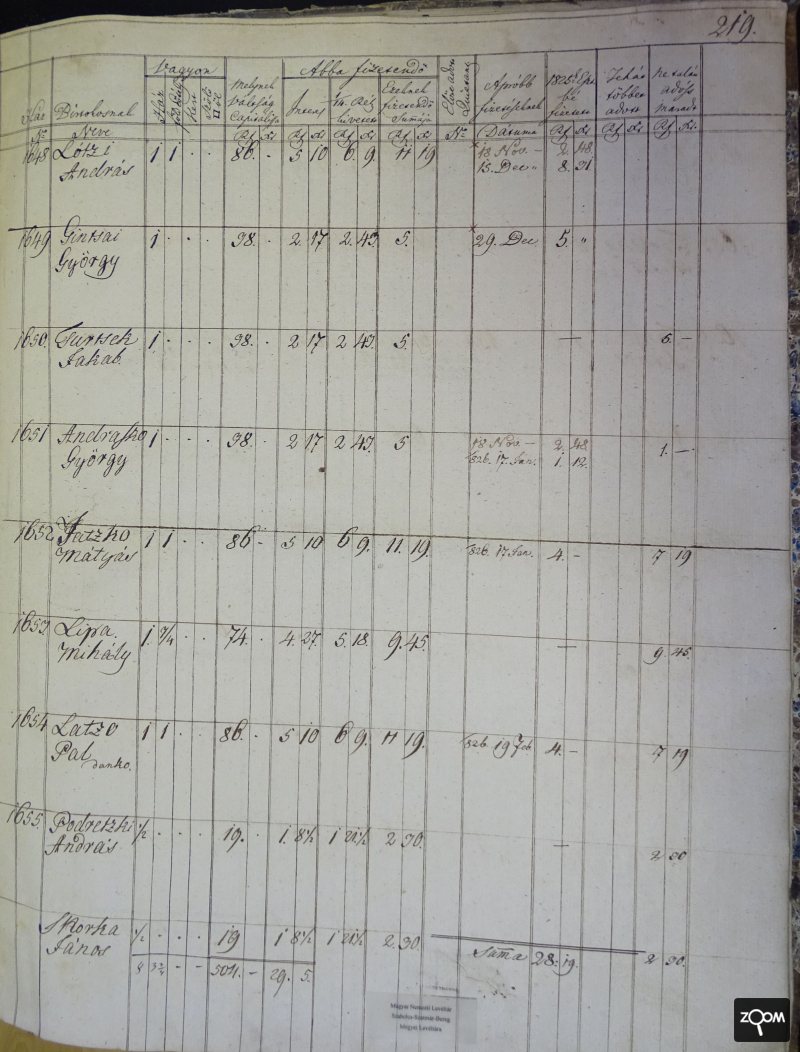 219.
Vagyon
Abba fizetendő
Ház
Melynek
Valóság
Capitalissa
Interes
14. Rész
Ezeknek
fizetendő
Sumája
Apróbb
fizetésének
1825
fizetett
Tehát
többet
adott
adóss
maradt
No
Neve
Rf Xr
Rf Xr
Rf Xr
Rf Xr
No
Datuma
Rf Xr
Rf Xr
Rf Xr
1648 Lötzi 1 1 · · 86. · 5 10 6. 9. 11 19 18 Nov – 2. 48.
András 15. Dec. 8. 31
1649 Gintsai 1 · · · 38. · 2. 17 2. 43. 5. 29. Dec 5. "
György
1650. Turtsek 1 · · · 38. · 2 17 2 43. 5. — 5. —
Jakab.
1651 Andrasko 1 · · · 38. · 2 17 2 43. 5 18 Nov – 2. 48. 1. —
György 17. Jan. 1. 12.
1652 Jatzko 1 1 · · 86 - 5 10 6 9. 11. 19. 17 Jan. 4. – 7 19
Mátyás
1653. Lipa 1. 3/4 · · 74. · 4. 27. 5. 18. 9. 45. — 9. 45
Mihály
1654 Latzo 1 1 · · 86. · 5 10 6 9. 11 19. 19 Feb 4. – 7 19
Pal
danko.
1655. Podretzki 1/2 · · · 19. · 1. 8½ 1 21½ 2 30. — 2 30
András
Skorka 1/2 · · · 19 1 8½ 1 21½ 2. 30. 2 30.
János
Suma 28. 19.
8 3¾ - - 504. – 29. 5.
Magyar Nemzeti Levéltár
Szabolcs-Szatmár-Bereg
Megyei Levéltára
ZOOM